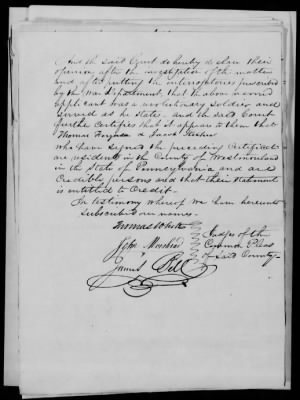 And the said Court do hereby declare their
opinion after the investigation of the matter
and after putting the interrogatories prescribed
by the War Department, that the above named
applicant was a revolutionary soldier and
served as he states. And the said Court
further Certifies that it appears to them that
Thomas & Jacob
who have signed the preceding Certificate
are residents in the County of Westmoreland
in the State of Pennsylvania and are
Credible persons and that their Statement
is entitled to Credit.
In testimony whereof we have hereunto
Subscribed our names.
Thomas
John
James Bell
Judges of the
Common Pleas
of said County